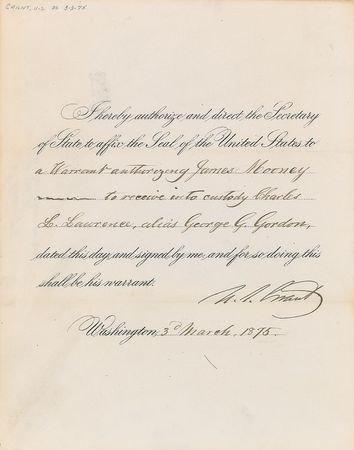 GRANT, U.S. DS 3-3-75
I hereby authorize and direct the Secretary
of State to affix the Seal of the United States to
a Warrant authorizing James Mooney
to receive into custody Charles
L. Lawrence, alias George G. Gordon,
dated this day, and signed by me, and for so doing this
shall be his warrant.
U. S. Grant
Washington, 3d March, 1875.